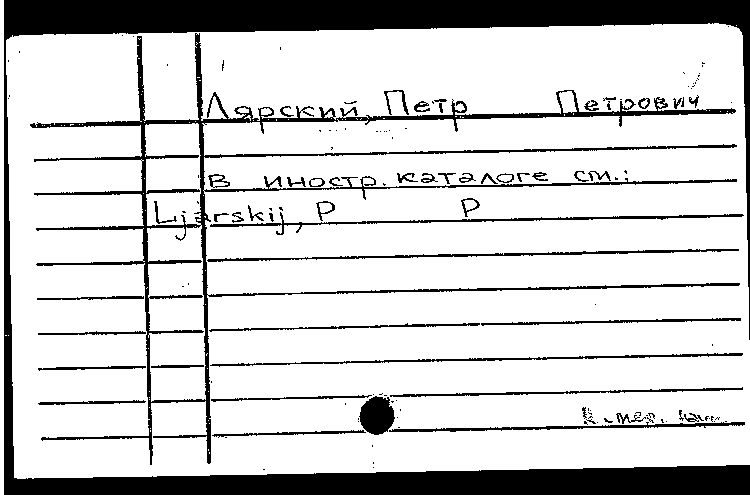 Лярский, Петр Петрович
В иностр. каталоге см.:
Ljarskij, P P